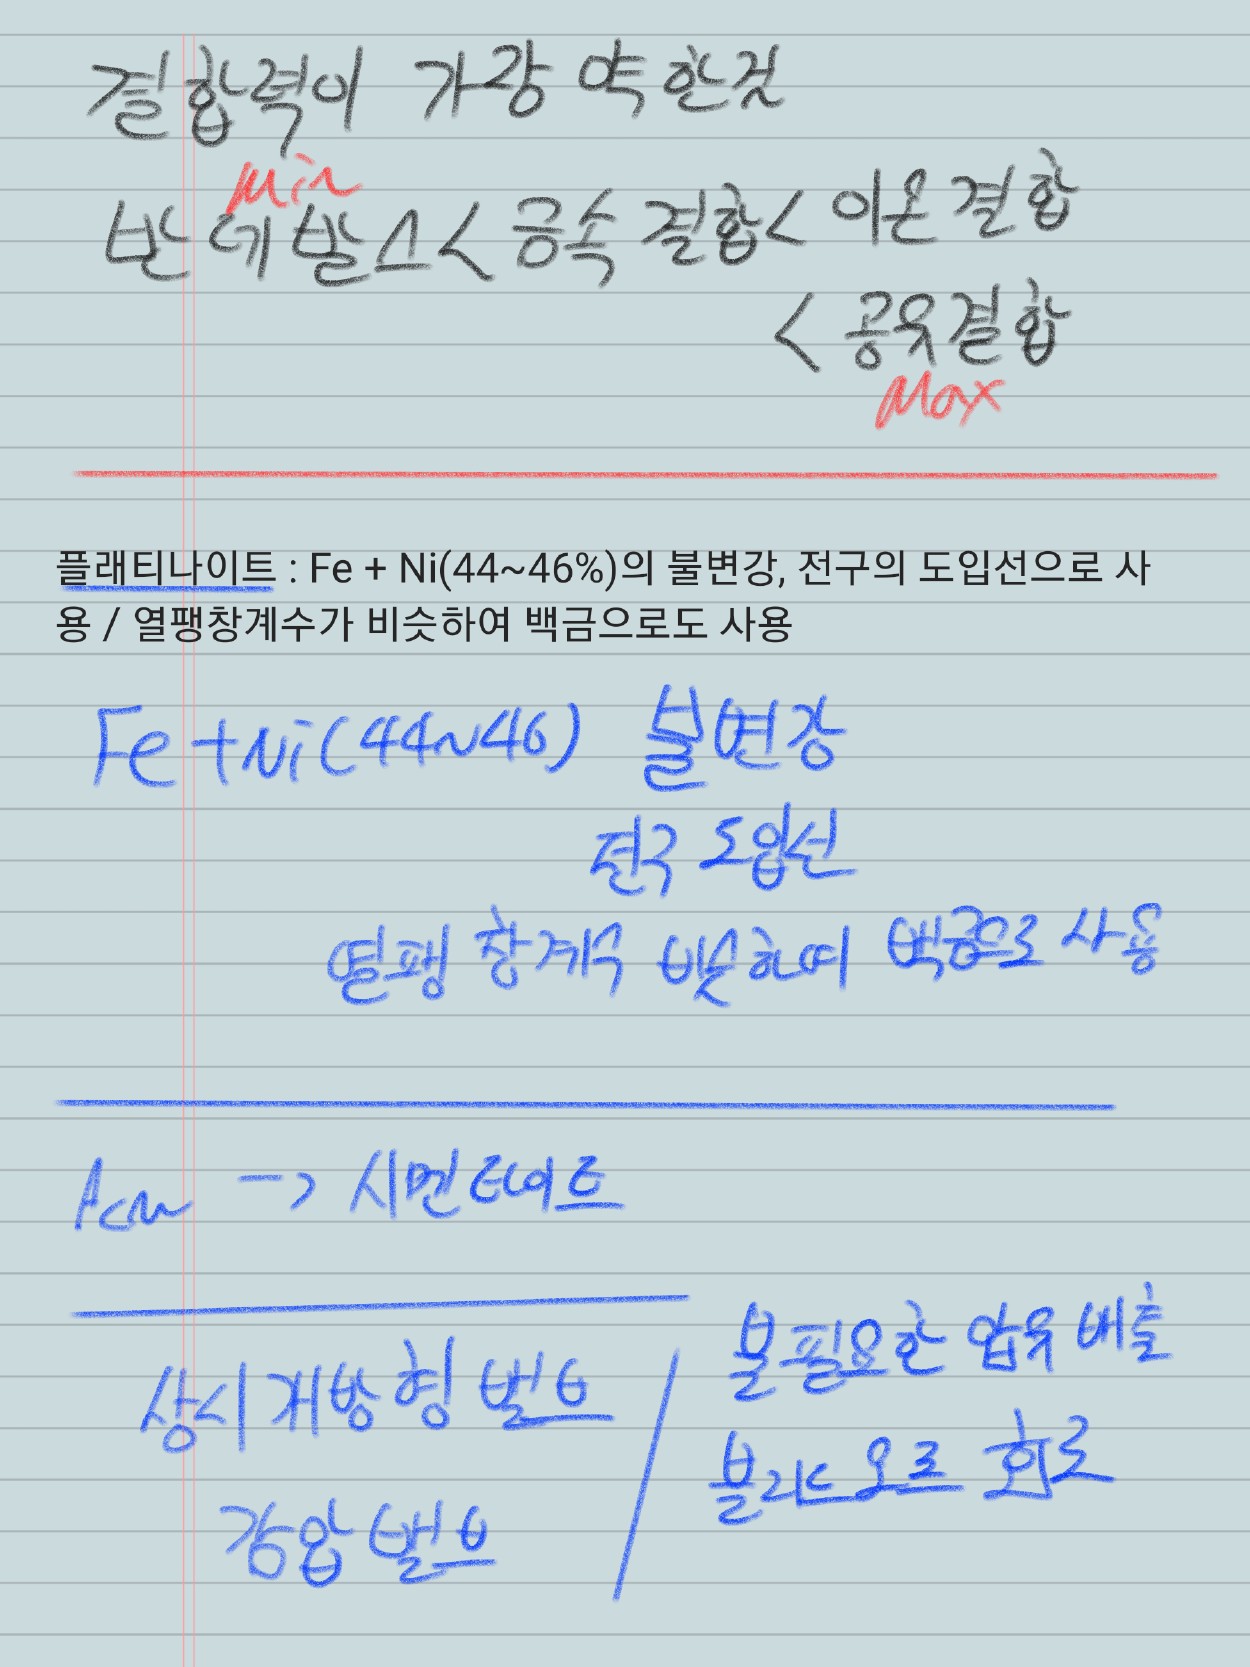 결합력이 가장 약한것
Min
반데발스 < 금속 결합 < 이온 결합
< 공유결합
Max
플래티나이트 : Fe + Ni(44~46%)의 불변강, 전구의 도입선으로 사
용 / 열팽창계수가 비슷하여 백금으로도 사용
Fe + Ni (44~46) 불변강
전구 도입선
열팽창계수 비슷하여 백금으로 사용
Acm -> 시멘타이트
상시개방형 밸브
감압밸브
불필요한 압유 배출
블리드 오프 회로